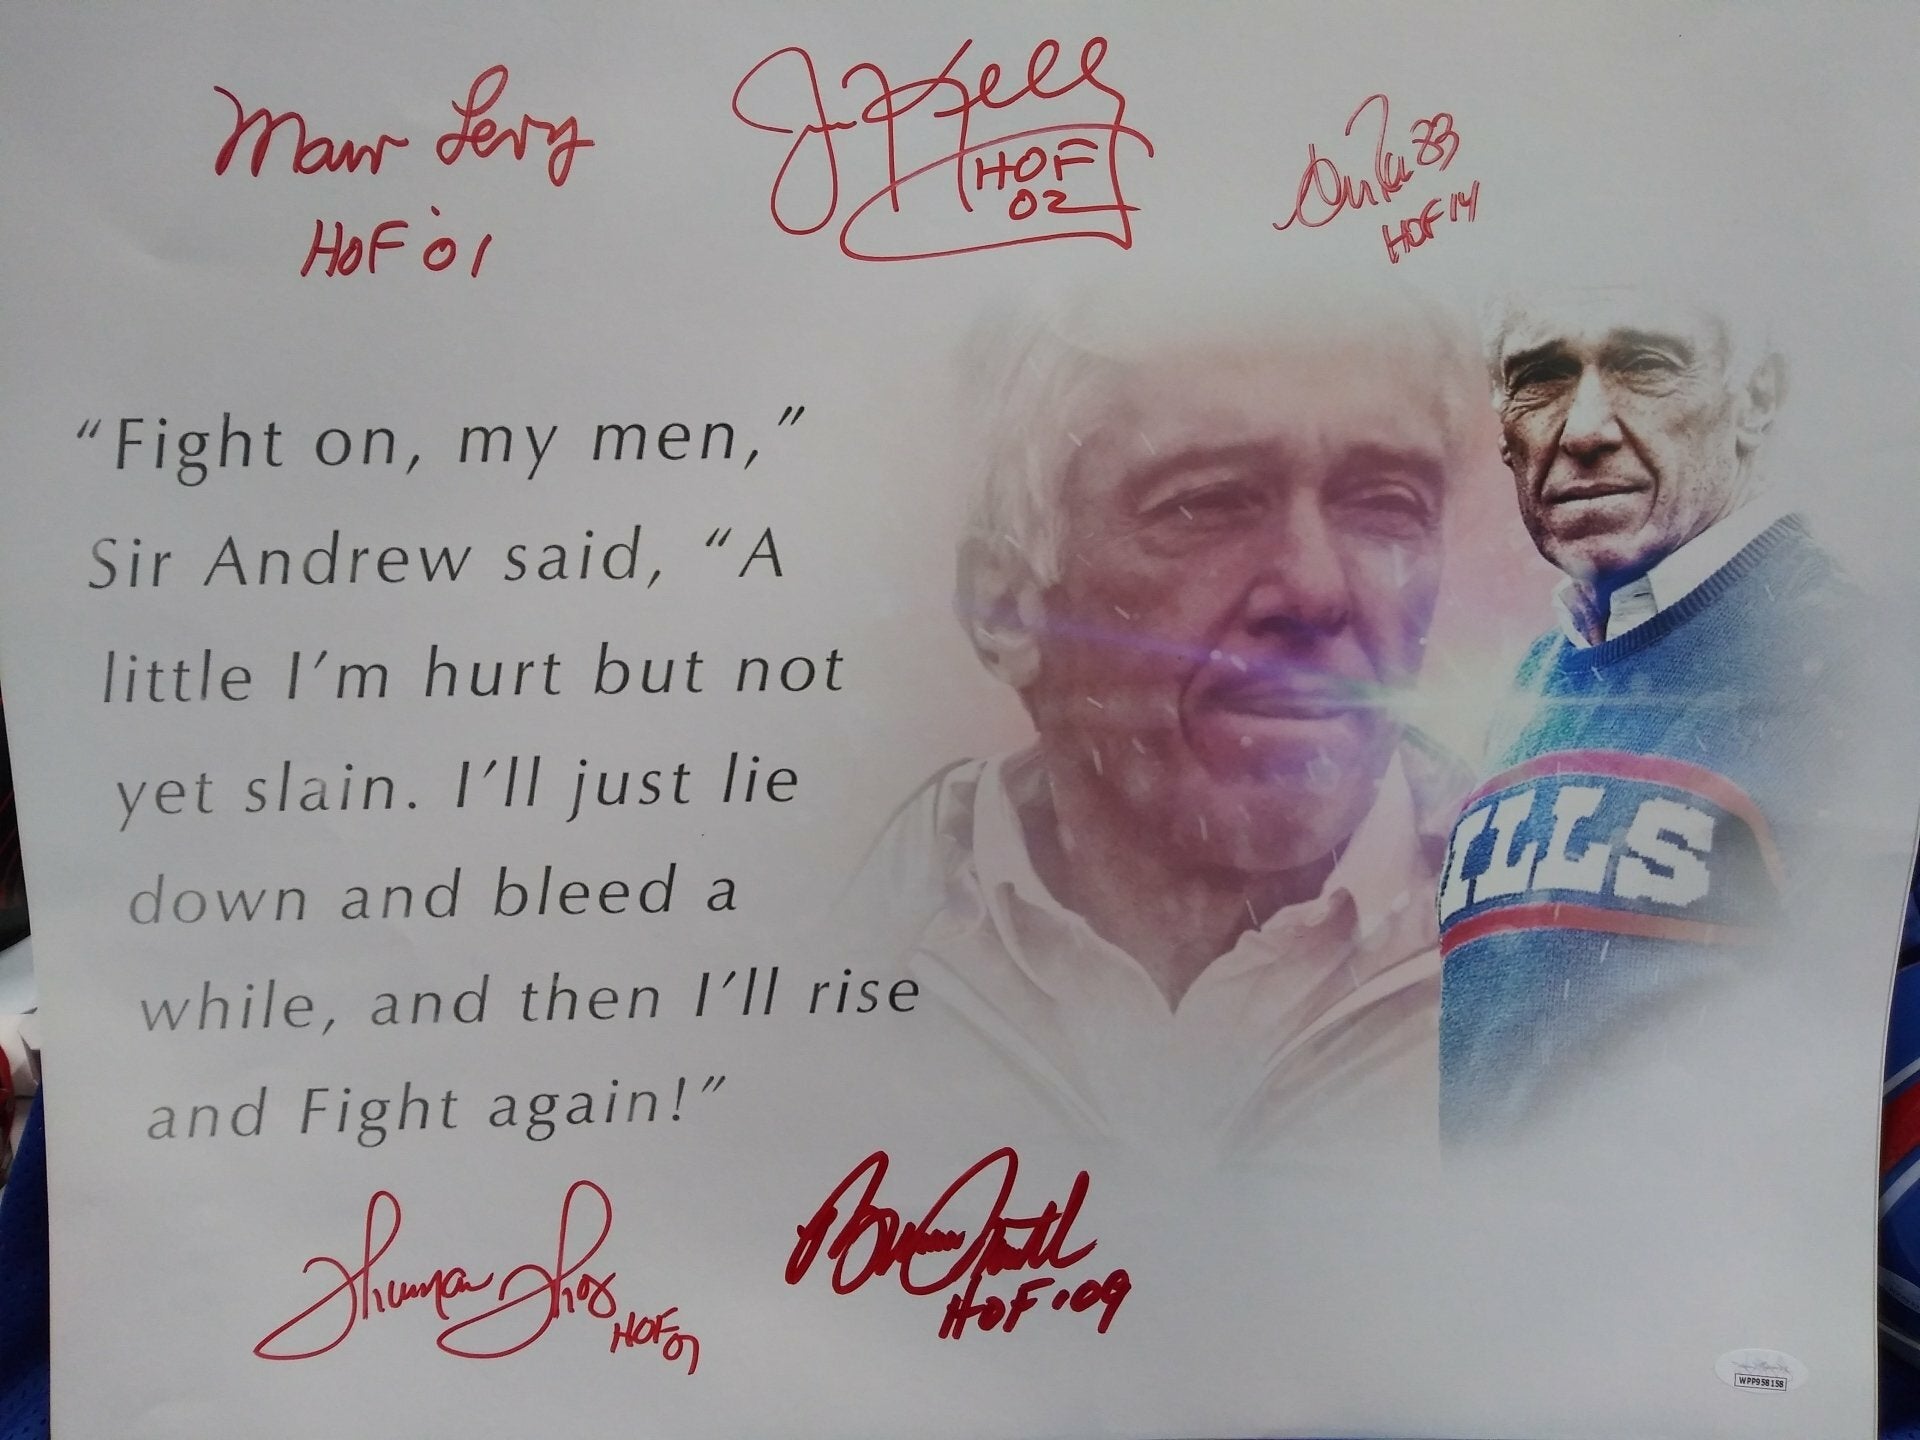 Marv Levy
HOF '01
Jim Kelly
HOF
02
83
HOF 14
“Fight on, my men,”
Sir Andrew said, “A
little I’m hurt but not
yet slain. I’ll just lie
down and bleed a
while, and then I’ll rise
and Fight again!”
ILLS
Thurman Thos
HOF 07
Bruce Smith
HOF '09
WPP958158